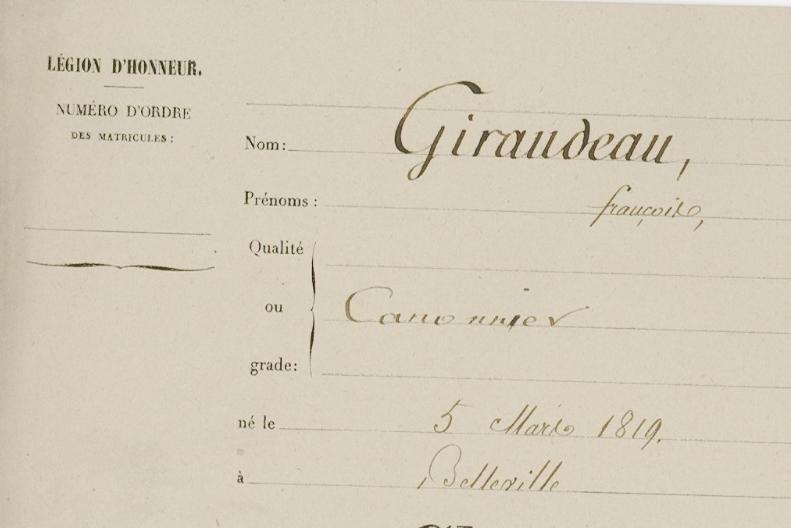 LÉGION D'HONNEUR.
NUMÉRO D'ORDRE
DES MATRICULES:
Nom: Giraudeau,
Prénoms: françois,
Qualité
ou Canonnier
grade:
né le 5 Mars 1819.
à Belleville